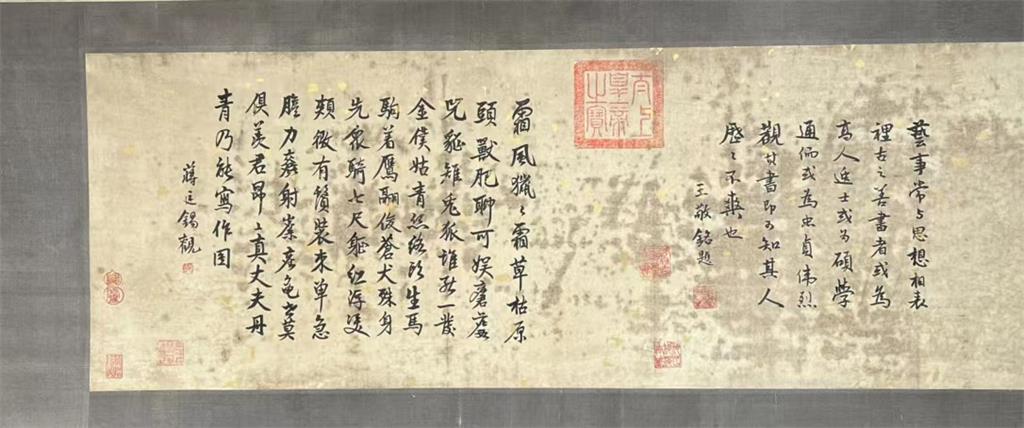 藝事常与思想相表
裡古之善書者或為
高人逸士或為碩學
通儒或為忠貞偉烈
觀其書即可知其人
歷〻不爽也
王敬銘題
太上皇帝之寶
霜風獵〻霜草枯原
頭獸肥聊可娛
雉兔狐堆一發
金僕姑青絲絡頭生馬
駒着鷹翮俊蒼犬殊身
先騎七尺軀紅浮雙
頰微有鬚裝束單急
膽力麤射莫
俱羨君昂〻真丈夫丹
青乃能寫作图
蔣廷錫觀